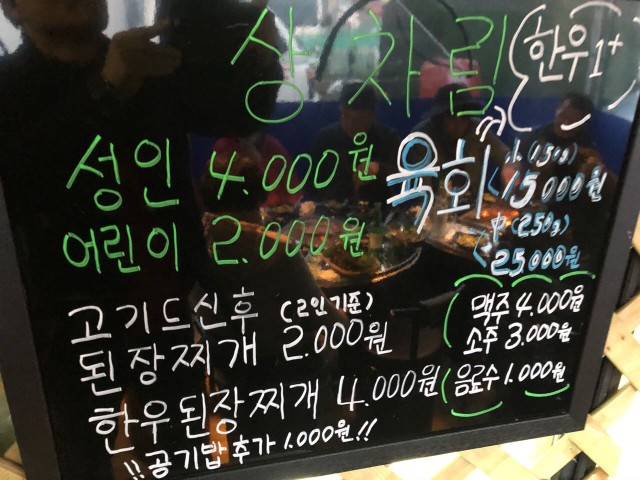 상차림
한우1+
성인 4.000원
어린이 2.000원
육회
小(150g)
15000원
中(250g)
25000원
고기드신후 (2인기준)
된장찌개 2.000원
한우된장찌개 4.000원
!!공기밥추가 1.000원!!
맥주 4.000원
소주 3.000원
음료수 1.000원